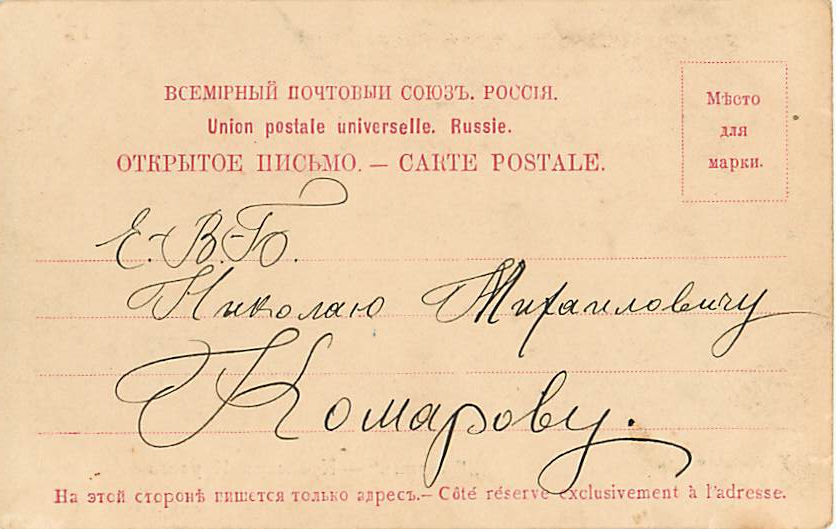 ВСЕМІРНЫЙ ПОЧТОВЫЙ СОЮЗЪ. РОССІЯ.
Union postale universelle. Russie.
ОТКРЫТОЕ ПИСЬМО. — CARTE POSTALE.
Мѣсто
для
марки.
Е.-В.-Б.
Николаю Михаиловичу
Комарову.
На этой сторонѣ пишется только адресъ.— Côté réservé exclusivement à l'adresse.